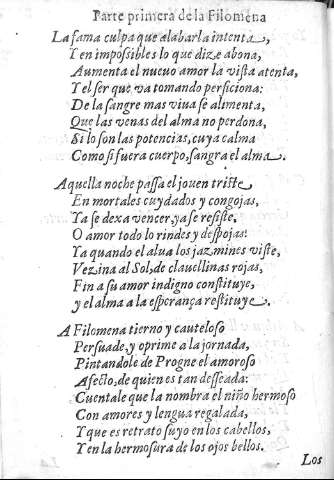 Parte primera de la Filomena
La fama culpa que alabarla intenta,
Y en impossibles lo que dize abona,
Aumenta el nueuo amor la vista atenta,
Y el ser que va tomando perficiona:
De la sangre mas viua se alimenta,
Que las venas del alma no perdona,
Si lo son las potencias, cuya calma
Como si fuera cuerpo, sangra el alma.
Aquella noche passa el jouen triste
En mortales cuydados y congojas,
Ya se dexa vencer, ya se resiste,
O amor todo lo rindes y despojas:
Ya quando el alua los jazmines viste,
Vezina al Sol, de clauellinas rojas,
Fin a su amor indigno constituye,
y el alma a la esperança restituye.
A Filomena tierno y cauteloso
Persuade, y oprime a la jornada,
Pintandole de Progne el amoroso
Afecto, de quien es tan desseada:
Cuentale que la nombra el niño hermoso
Con amores y lengua regalada,
Y que es retrato suyo en los cabellos,
Y en la hermosura de los ojos bellos.
Los